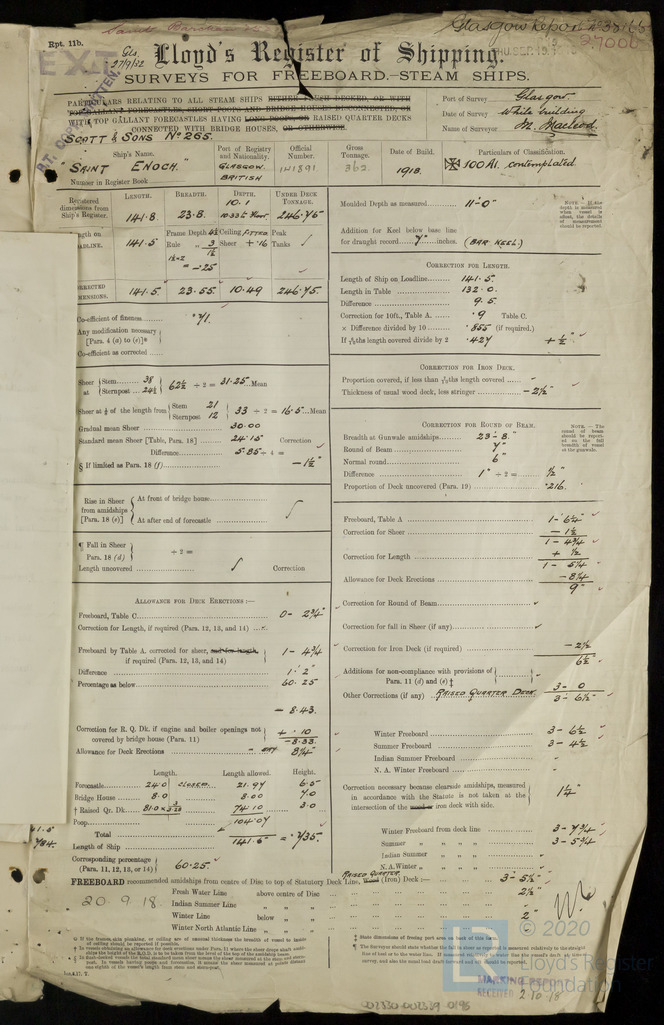 Glasgow Report No 38166
Rpt. 11b.
Gls.
27/9/32
27000
Lloyd's Register of Shipping.
SURVEYS FOR FREEBOARD.—STEAM SHIPS.
PARTICULARS RELATING TO ALL STEAM SHIPS EITHER FLUSH DECKED, OR WITH
WITH TOP GALLANT FORECASTLES HAVING LONG POOPS, OR RAISED QUARTER DECKS
CONNECTED WITH BRIDGE HOUSES, OR OTHERWISE.
Port of Survey Glasgow.
Date of Survey While building
Name of Surveyor M. Macleod.
SCOTT & SONS No 265.
Ship's Name. Port of Registry and Nationality. Official Number. Gross Tonnage. Date of Build. Particulars of Classification.
"SAINT ENOCH." GLASGOW. BRITISH 141891 362 1918. 100A1. contemplated
Number in Register Book
LENGTH. BREADTH. DEPTH. UNDER DECK TONNAGE.
Registered dimensions from Ship's Register. 141.8. 23.8. 10.1 246.75
141.5 Frame Depth Ceiling FITTED Peak
Rule Sheer + .16 Tanks
= -.25
141.5 23.55 10.49 246.75
Moulded Depth as measured 11'-0"
Addition for Keel below base line
for draught record 7" inches. (BAR KEEL.)
CORRECTION FOR LENGTH.
Length of Ship on Loadline 141.5.
Length in Table 132.0.
Difference 9.5
Correction for 10ft., Table A. .9 Table C.
× Difference divided by 10 .855 (if required.)
If 6/10ths length covered divide by 2 .427 + ½"
CORRECTION FOR IRON DECK.
Proportion covered, if less than 7/10ths length covered
Thickness of usual wood deck, less stringer - 2½"
CORRECTION FOR ROUND OF BEAM.
Breadth at Gunwale amidships 23'-8."
Round of Beam 7"
Normal round 6"
Difference 1" ÷ 2 = ½"
Proportion of Deck uncovered (Para. 19) .216.
Co-efficient of fineness .71.
Any modification necessary
[Para. 4 (a) to (e)]*
Co-efficient as corrected
Sheer at Stem 38 Sternpost 24½ 62½ ÷ 2 = 31.25 Mean
Sheer at ⅛ of the length from Stem 21 Sternpost 12 33 ÷ 2 = 16.5 Mean
Gradual mean Sheer 30.00
Standard mean Sheer [Table, Para. 18] 24.15 Correction
Difference 5.85 ÷ 4 =
§ If limited as Para. 18 (f) - 1½"
Rise in Sheer from amidships [Para. 18 (e)]
At front of bridge house
At after end of forecastle
¶ Fall in Sheer
Para. 18 (d) ÷ 2 =
Length uncovered Correction
ALLOWANCE FOR DECK ERECTIONS:—
Freeboard, Table C 0- 2¾"
Correction for Length, if required (Para. 12, 13, and 14)
Freeboard by Table A. corrected for sheer, and for length, if required (Para. 12, 13, and 14) 1- 4¾
Difference 1' 2"
Percentage as below 60.25
- 8.43.
Correction for R. Q. Dk. if engine and boiler openings not covered by bridge house (Para. 11) + .10
-8.33.
Allowance for Deck Erections 8¼"
Length. Length allowed. Height.
Forecastle 24.0 CLOSED. 21.97 6.5
Bridge House 8.0 8.00 7.0
† Raised Qr. Dk. 81.0 74.10 3.0
Poop 104.07
Total 141.5
Length of Ship = .735.
Corresponding percentage
(Para. 11, 12, 13, or 14) 60.25.
Freeboard, Table A 1- 6¼
Correction for Sheer - 1½
1- 4¾
Correction for Length + ½
1- 5¼
Allowance for Deck Erections - 8¼
9"
Correction for Round of Beam
Correction for fall in Sheer (if any)
Correction for Iron Deck (if required) - 2½
6½
Additions for non-compliance with provisions of
Para. 11 (d) and (e) ‡
Other Corrections (if any) RAISED QUARTER DECK 3- 0
3- 6½
Winter Freeboard 3- 6½
Summer Freeboard 3- 4½
Indian Summer Freeboard
N. A. Winter Freeboard
Correction necessary because clearside amidships, measured
in accordance with the Statute is not taken at the
intersection of the wood or iron deck with side. 1¼"
Winter Freeboard from deck line 3- 7¾
Summer " " " " 3- 5¾
Indian Summer " "
N.A. Winter " "
FREEBOARD recommended amidships from centre of Disc to top of Statutory Deck Line, RAISED QUARTER Wood (Iron) Deck:— 3- 5½"
20.9.18.
Fresh Water Line above centre of Disc 2½"
Indian Summer Line " "
Winter Line below " " 2"
Winter North Atlantic Line " "
© 2020
Lloyd's Register
Foundation
RECEIVED 2.10.18
002330-002339-0195